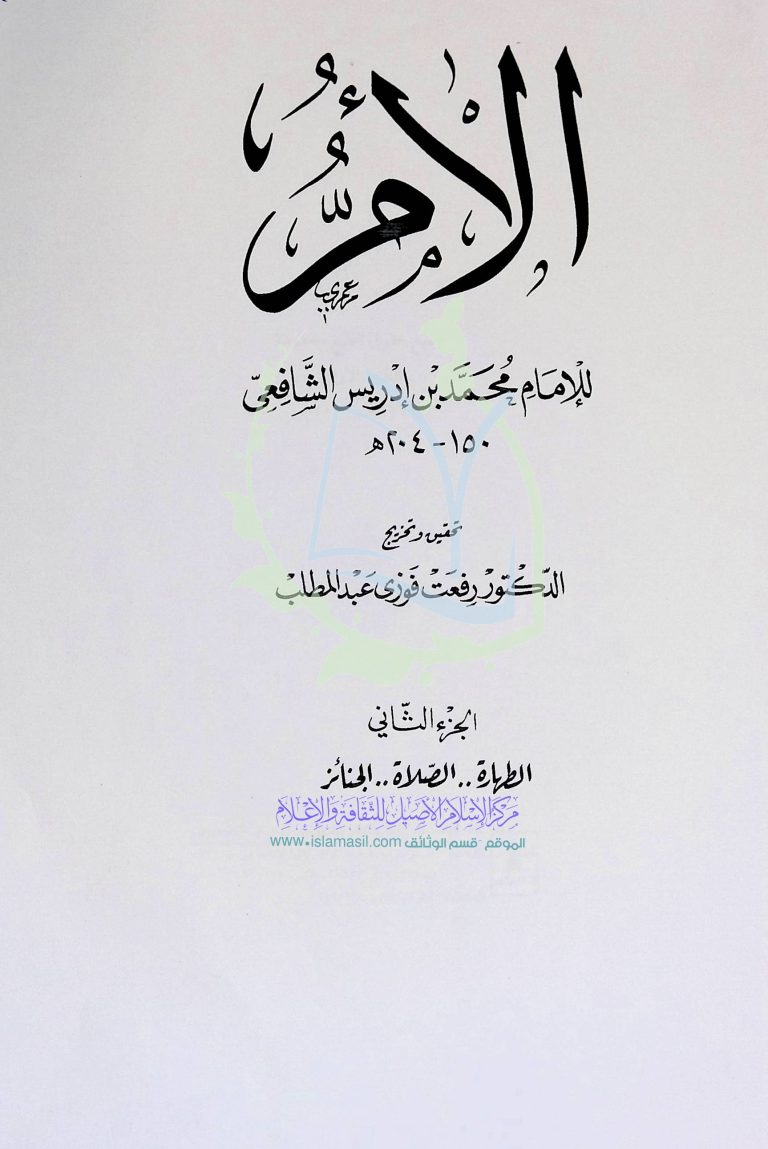 الْأُمُّ
لِلْإِمَامِ مُحَمَّد بْن إدْرِيس الشَّافِعِيّ
١٥٠ - ٢٠٤هـ
تحقيق وتخريج
الدّكْتورْ رِفعَتْ فَوْزى عَبْد المطلبْ
الجزء الثَّاني
الطهارة .. الصّلاة .. الجنائز
مركز الإسلام الأصيل للثقافة والإعلام
الموقع - قسم الوثائق www.islamasil.com